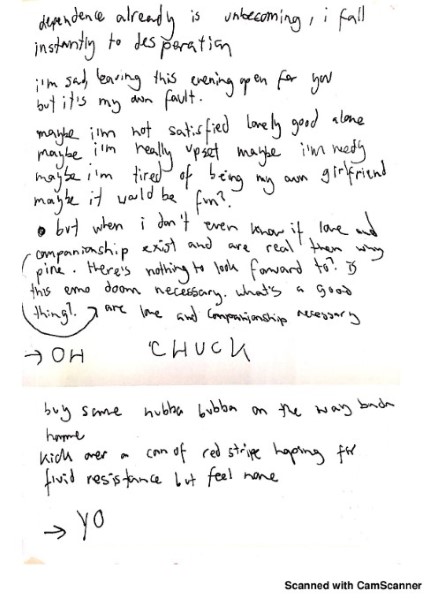 dependence already is unbecoming, i fall
instantly to desperation
i'm sad, leaving this evening open for you
but it's my own fault.
maybe i'm not satisfied lonely good alone
maybe i'm really upset maybe i'm needy
maybe i'm tired of being my own girlfriend
maybe it would be fun?
but when i don't even know if love and
companionship exist and are real then why
pine. there's nothing to look forward to? is
this emo doom necessary. what's a good
thing? → are love and companionship necessary
→ OH CHUCK
buy some hubba bubba on the way
home
kick over a can of red stripe hoping for
fluid resistance but feel none
→ YO
Scanned with CamScanner